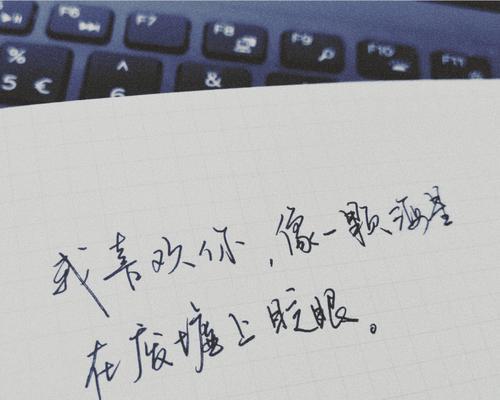 F6 F7 F8 F9 F10 F11
% 5 € ^ 6 &
我喜欢你,像一颗海星
在废墟上眨眼。